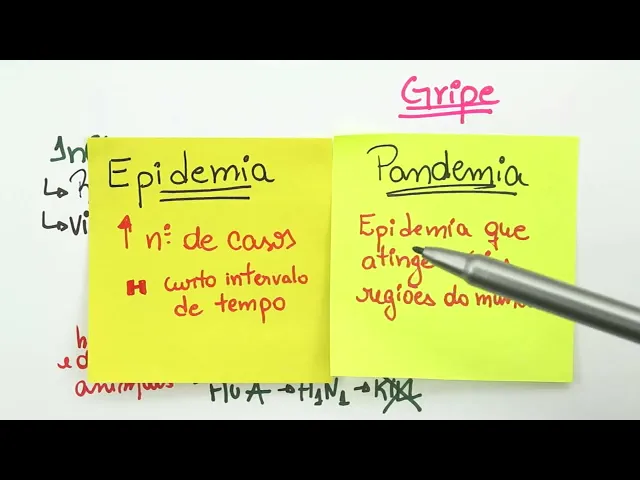 Gripe
Epidemia
↑ nº de casos
curto intervalo
de tempo
Pandemia
Epidemia que
atinge
regiões do
animais
H1N1